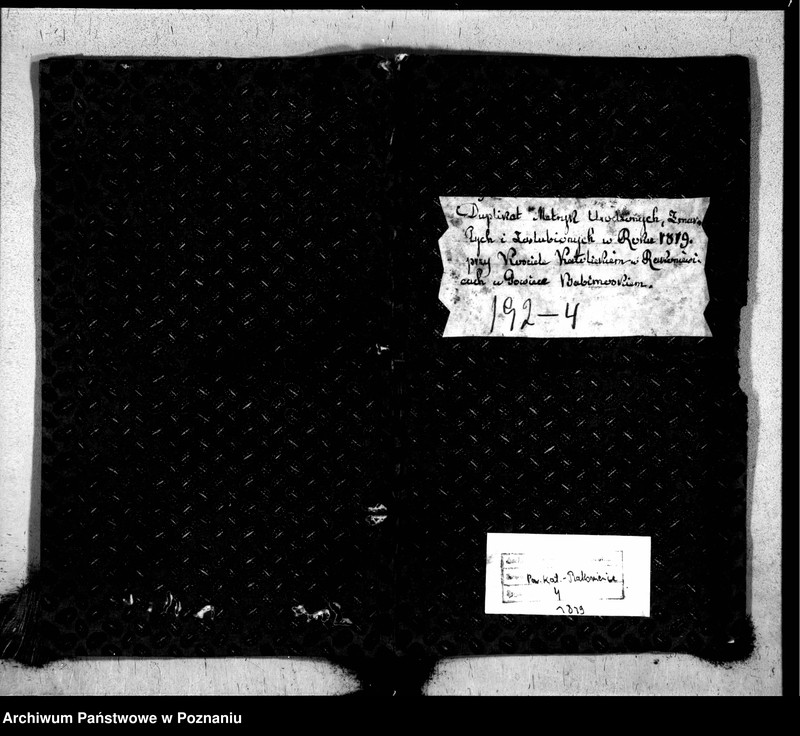 Duplikat Metryk Urodzonych, Zmar-
łych i Zaślubionych w Roku 1819.
przy Kosciele Katolickiem w Rakoniewi-
cach w Powiece Babimoskiem.
192-4
Par. kat. - Rakoniewice
4
1819
Archiwum Państwowe w Poznaniu